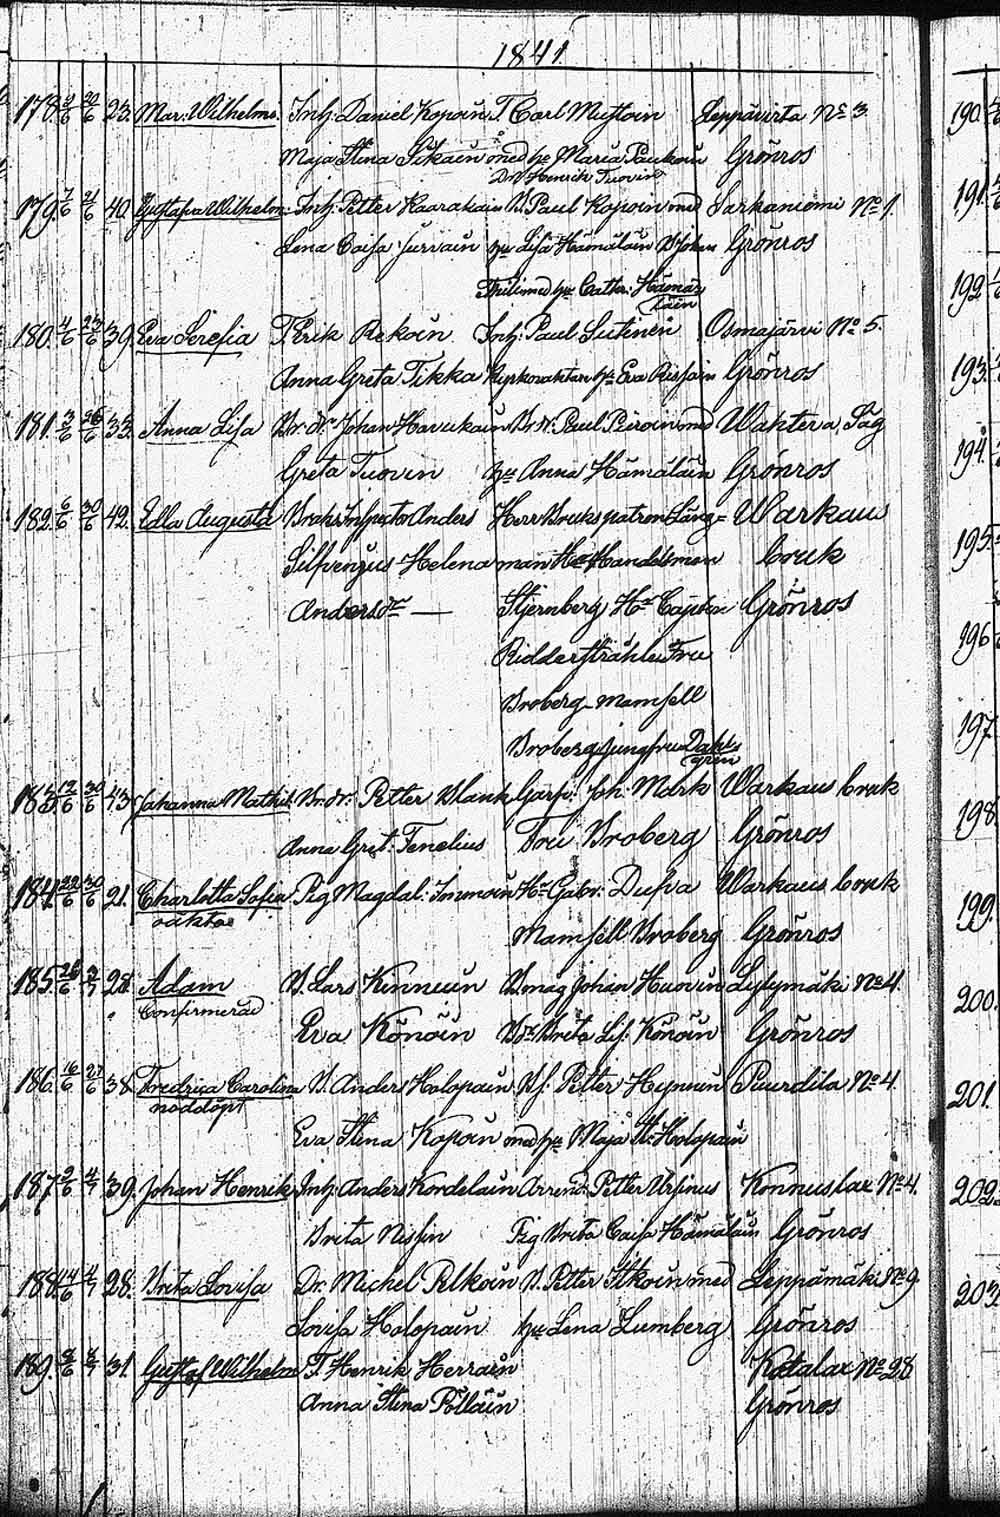 1841.
178. 9/6 20/6 23. Mar. Wilhelmi. Inh: Daniel Kopoin T. Carl Mustoin Leppävirta No 3.
Maja Stina Sikain med hu Maria Paukoin Grönros
Dr. Henrik Tuovin
179. 7/6 21/6 40. Gustafva Wilhelm: Inh: Petter Kaarakain B. Paul Kopoin med Sarkaniemi No 1.
Lena Caisa Jurvain hu Lisa Hämäläin B. Johan Grönros
med hu Cathr: Hämä-
läin
180. 4/6 23/6 39. Eva Serefia T. Erik Rekoin Inh: Paul Sutinen Osmajärvi No 5.
Anna Greta Tikka hu Eva Rissain Grönros
181. 3/6 26/6 33. Anna Lisa Br. dr. Johan Havukain Br. dr. Paul Piiroin med Wahtera Såg
Greta Tuovin hu Anna Hämäläin Grönros
182. 6/6 30/6 42. Edla Augusta Bruks Inspector Anders Herr Bruks patron Läng= Warkaus
Silfvenius Helena man Hr Handelsman bruk
Andersdr — Stjernberg Hr Capiten Grönros
Ridderstråhle Fru
Broberg Mamsell
Broberg jungfru Dahl-
gren
183. 12/6 30/6 43. Johanna Mathil: Br. dr: Petter Blank Garf: Joh: Mark Warkaus bruk
Anna Gret: Fenelius Fru Broberg Grönros
184. 22/6 30/6 21. Charlotta Sofia Pig Magdal: Immoin Hr Gabr: Dufva Warkaus bruk
oäkta Mamsell Broberg Grönros
185. 26/6 3/7 28. Adam B. Lars Kinnuin B. måg Johan Huovin Lylymäki No 4.
Confirmerad Eva Könöin Bdr Brita Lis: Könöin Grönros
186. 16/6 27/6 38. Fredrica Carolina B. Anders Holopain Bs: Petter Hynnin Puurdila No 4.
nöddöpt Eva Stina Kopoin med hu Maja St: Holopain
187. 2/6 4/7 39. Johan Henrik Inh: Anders Kordelain Arrend: Petter Ursinus Konnuslax No 4.
Brita Nissin Pig Brita Caisa Hämäläin Grönros
188. 14/6 4/7 28. Brita Lovisa Dr. Michel Pelkoin B. Petter Itkoin med Leppämäki No 9.
Lovisa Holopain hu Lena Lumberg Grönros
189. 8/6 8/7 31. Gustaf Wilhelm T. Henrik Herrain Kotalax No 28
Anna Stina Pölläin Grönros
190.
191.
192
193.
194.
195.
196
197
198
199.
200.
201.
202.
203.